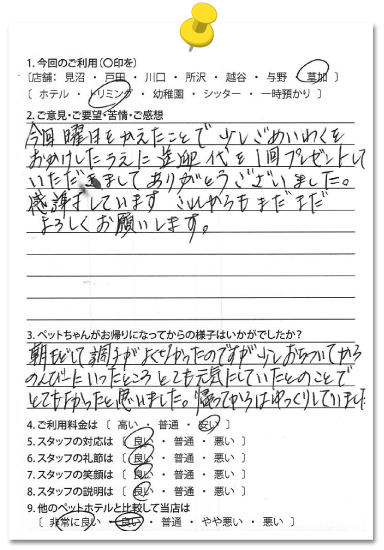 1. 今回のご利用(〇印を)
〔店舗： 見沼 ・ 戸田 ・ 川口 ・ 所沢 ・ 越谷 ・ 与野 ・ 草加 〕
〔 ホテル ・ トリミング ・ 幼稚園 ・ シッター ・ 一時預かり 〕
2. ご意見・ご要望・苦情・ご感想
今回 曜日をかえたことで 少しごめいわくを
おかけしたうえに 送迎代を1回プレゼントして
いただきましてありがとうございました。
感謝しています これからもまだまだ
よろしくお願いします。
3. ペットちゃんがお帰りになってからの様子はいかがでしたか？
朝 して調子がよくなかったのですが少しおちついてから
のんびーにいったところ とても元気にしていたとのことで
とてもよかったと思いました。帰ってからはゆっくりしていました
4. ご利用料金は 〔 高い ・ 普通 ・ 安い 〕
5. スタッフの対応は 〔 良い ・ 普通 ・ 悪い 〕
6. スタッフの礼節は 〔 良い ・ 普通 ・ 悪い 〕
7. スタッフの笑顔は 〔 良い ・ 普通 ・ 悪い 〕
8. スタッフの説明は 〔 良い ・ 普通 ・ 悪い 〕
9. 他のペットホテルと比較して当店は
〔 非常に良い ・ 良い ・ 普通 ・ やや悪い ・ 悪い 〕